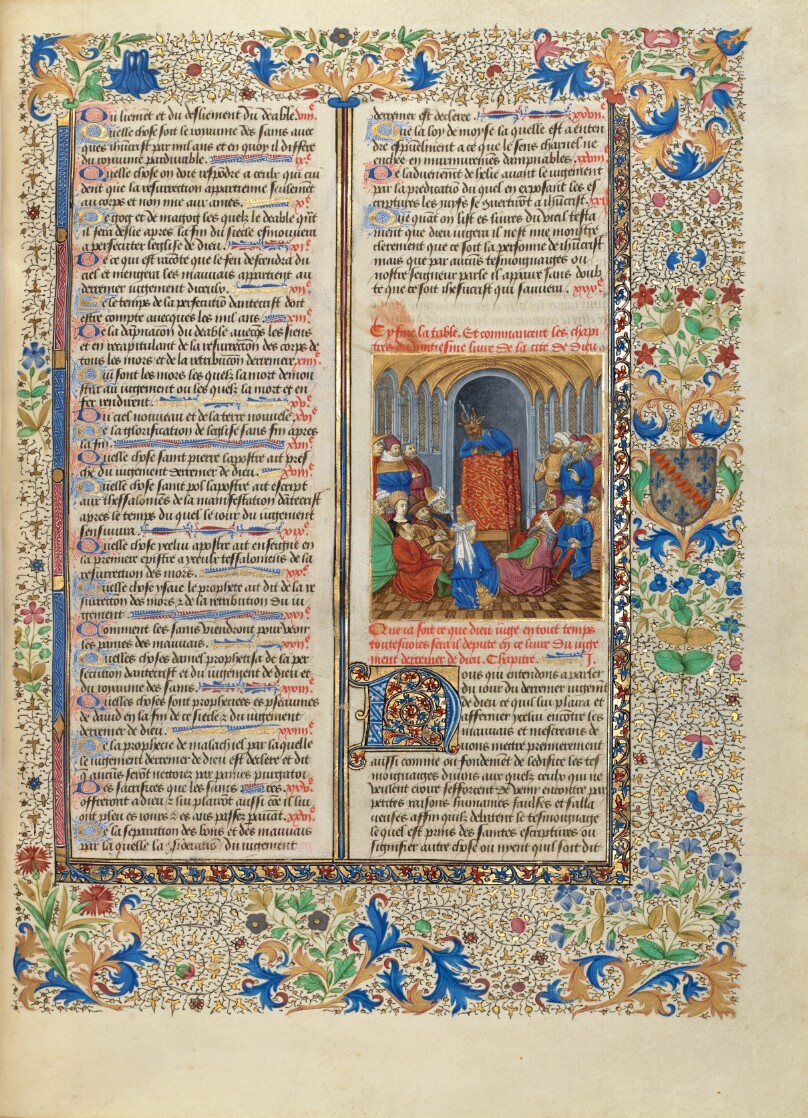 Du liement et du desliement du deable. viii.e
Quelle chose soit le royaume des sains auec
ihucrist par mil ans et en quoy il differe
du royaume pardurable. ix.e
Quelle chose on doie respõdre a ceulx qui cui
dent que la resurrection appartiene seulemẽt
au corps et non mie aux ames. x.e
De gog et de magog les quelz le deable quãt
il sera deslie apres la fin du siecle esmouuera
a persecuter leglise de dieu. xi.e
De ce qui est racõte que le feu descendra du
ciel et mengera les mauuais appartient au
derrenier iugement dicelx. xii.e
Se le temps de la persecutiõ dantecrist doit
estre compte auecques les mil ans. xiii.e
De la dãpnacion du deable auecqs les siens
et en recapitulant de la resurrection des corps de
tous les mors et de la retribuciõn derreniere. xiiii.e
Qui sont les mors les quelz la mer donna
pour au iugement ou les quelz la mort et en
fer rendirent. xv.e
Du ciel nouueau et de la terre nouuelle. xvi.e
De la glorification de leglise sans fin apres
la fin. xvii.e
Quelle chose saint pierre lapostre ait pres
che du iugement derrenier de dieu. xviii.e
Quelle chose saint pol lapostre ait escript
aux thessaloniens de la manifestation dãtecrist
apres le temps du quel le iour du iugement
sensuiura. xix.e
Quelle chose ycelui apostre ait enseigne en
la premiere epistre a yceulx tessaloniens de la
resurrection des mors. xx.e
Quelle chose ysaie le prophete ait dit de la re
surrection des mors & de la retribution du iu
gement. xxi.e
Comment les sains viendront pour veoir
les paines des mauuais. xxii.e
Quelles choses daniel prophetisa de la per
secution dantecrist et du iugement de dieu et
du royaume des sains. xxiii.e
Quelles choses sont prophetiees es pseaumes
de dauid en la fin de ce siecle & du iugement
derrenier de dieu. xxiiii.e
De la prophecie de malachiel par laquelle
le iugement derrenier de dieu est declere et dit
q̃ aucũs serõt nettoiez par paines purgator.
Des sacrefices que les sains xxv.e
offreront a dieu & lui plairõt aussi cõe il lui
ont pleu es iours & es ans passez par auãt. xxvi.e
De la separation des bons et des mauuais
par la quelle la du iugement
derrenier est declere. xxvii.
Que la loy de moyse la quelle est a enten
dre espirituelment a ce que le sens charnel ne
enchee en murmuremẽs dampnables. xxviii.
De laduenemẽt de helie auant le iugement
par la predicatiõ du quel en exposant les es
criptures les iuifs se conuertirõt a ihucrist. xxix
Que quãt on list es liures du vieil testa
ment que dieu iugera il nest mie monstre
clerement que ce soit la personne de ihucrist
mais que par aucũs tesmoingnages ou
nostre seigneur parle il appaire sans doub
te que ce soit ihesucrist qui sauuient. xxx.e
Cy fine la table. Et commancent les chapi
tres du vintiesme liure de la cite de dieu.
Que ia soit ce que dieu iuge en tout temps
toutesuoies sera il dispute en ce liure du iuge
ment derrenier de dieu. Chapitre. I.
Nous qui entendons a parler
du iour du derrenier iugemẽt
de dieu ce quil lui plaira et
laffermer ycelui encontre les
mauuais et mescreans de
uons mettre premierement
aussi comme ou fondement de ledifice les tes
moingnages diuins aux quelz ceulx qui ne
veulent croire sefforcent de venir encontre par
petites raisons humaines faulses et falla
cieuses affin quilz debatent le tesmoingnage
le quel est prins des saintes escriptures ou
signifier autre chose ou nyent quil soit dit